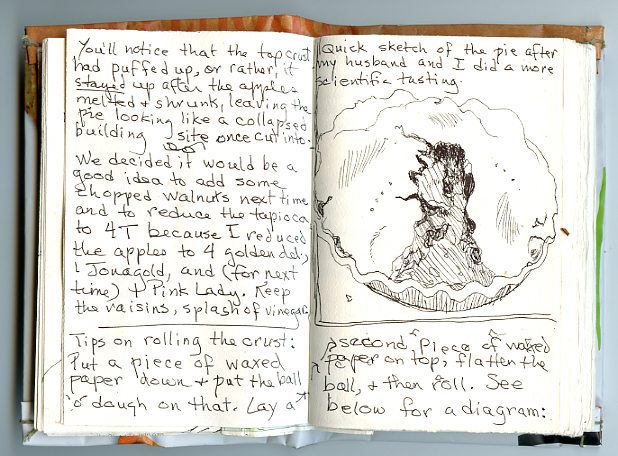 You'll notice that the top crust
had puffed up, or rather, it
stayed up after the apples
melted & shrunk, leaving the
pie looking like a collapsed
building site once cut into.
We decided it would be a
good idea to add some
chopped walnuts next time
and to reduce the tapioca
to 4T because I reduced
the apples to 4 golden del.,
1 Jonagold, and (for next
time) 1 Pink Lady. Keep
the raisins, splash of vinegar.
Tips on rolling the crust:
Put a piece of waxed
paper down & put the ball
o' dough on that. Lay a
Quick sketch of the pie after
my husband and I did a more
scientific tasting.
second piece of waxed
paper on top, flatten the
ball, & then roll. See
below for a diagram: